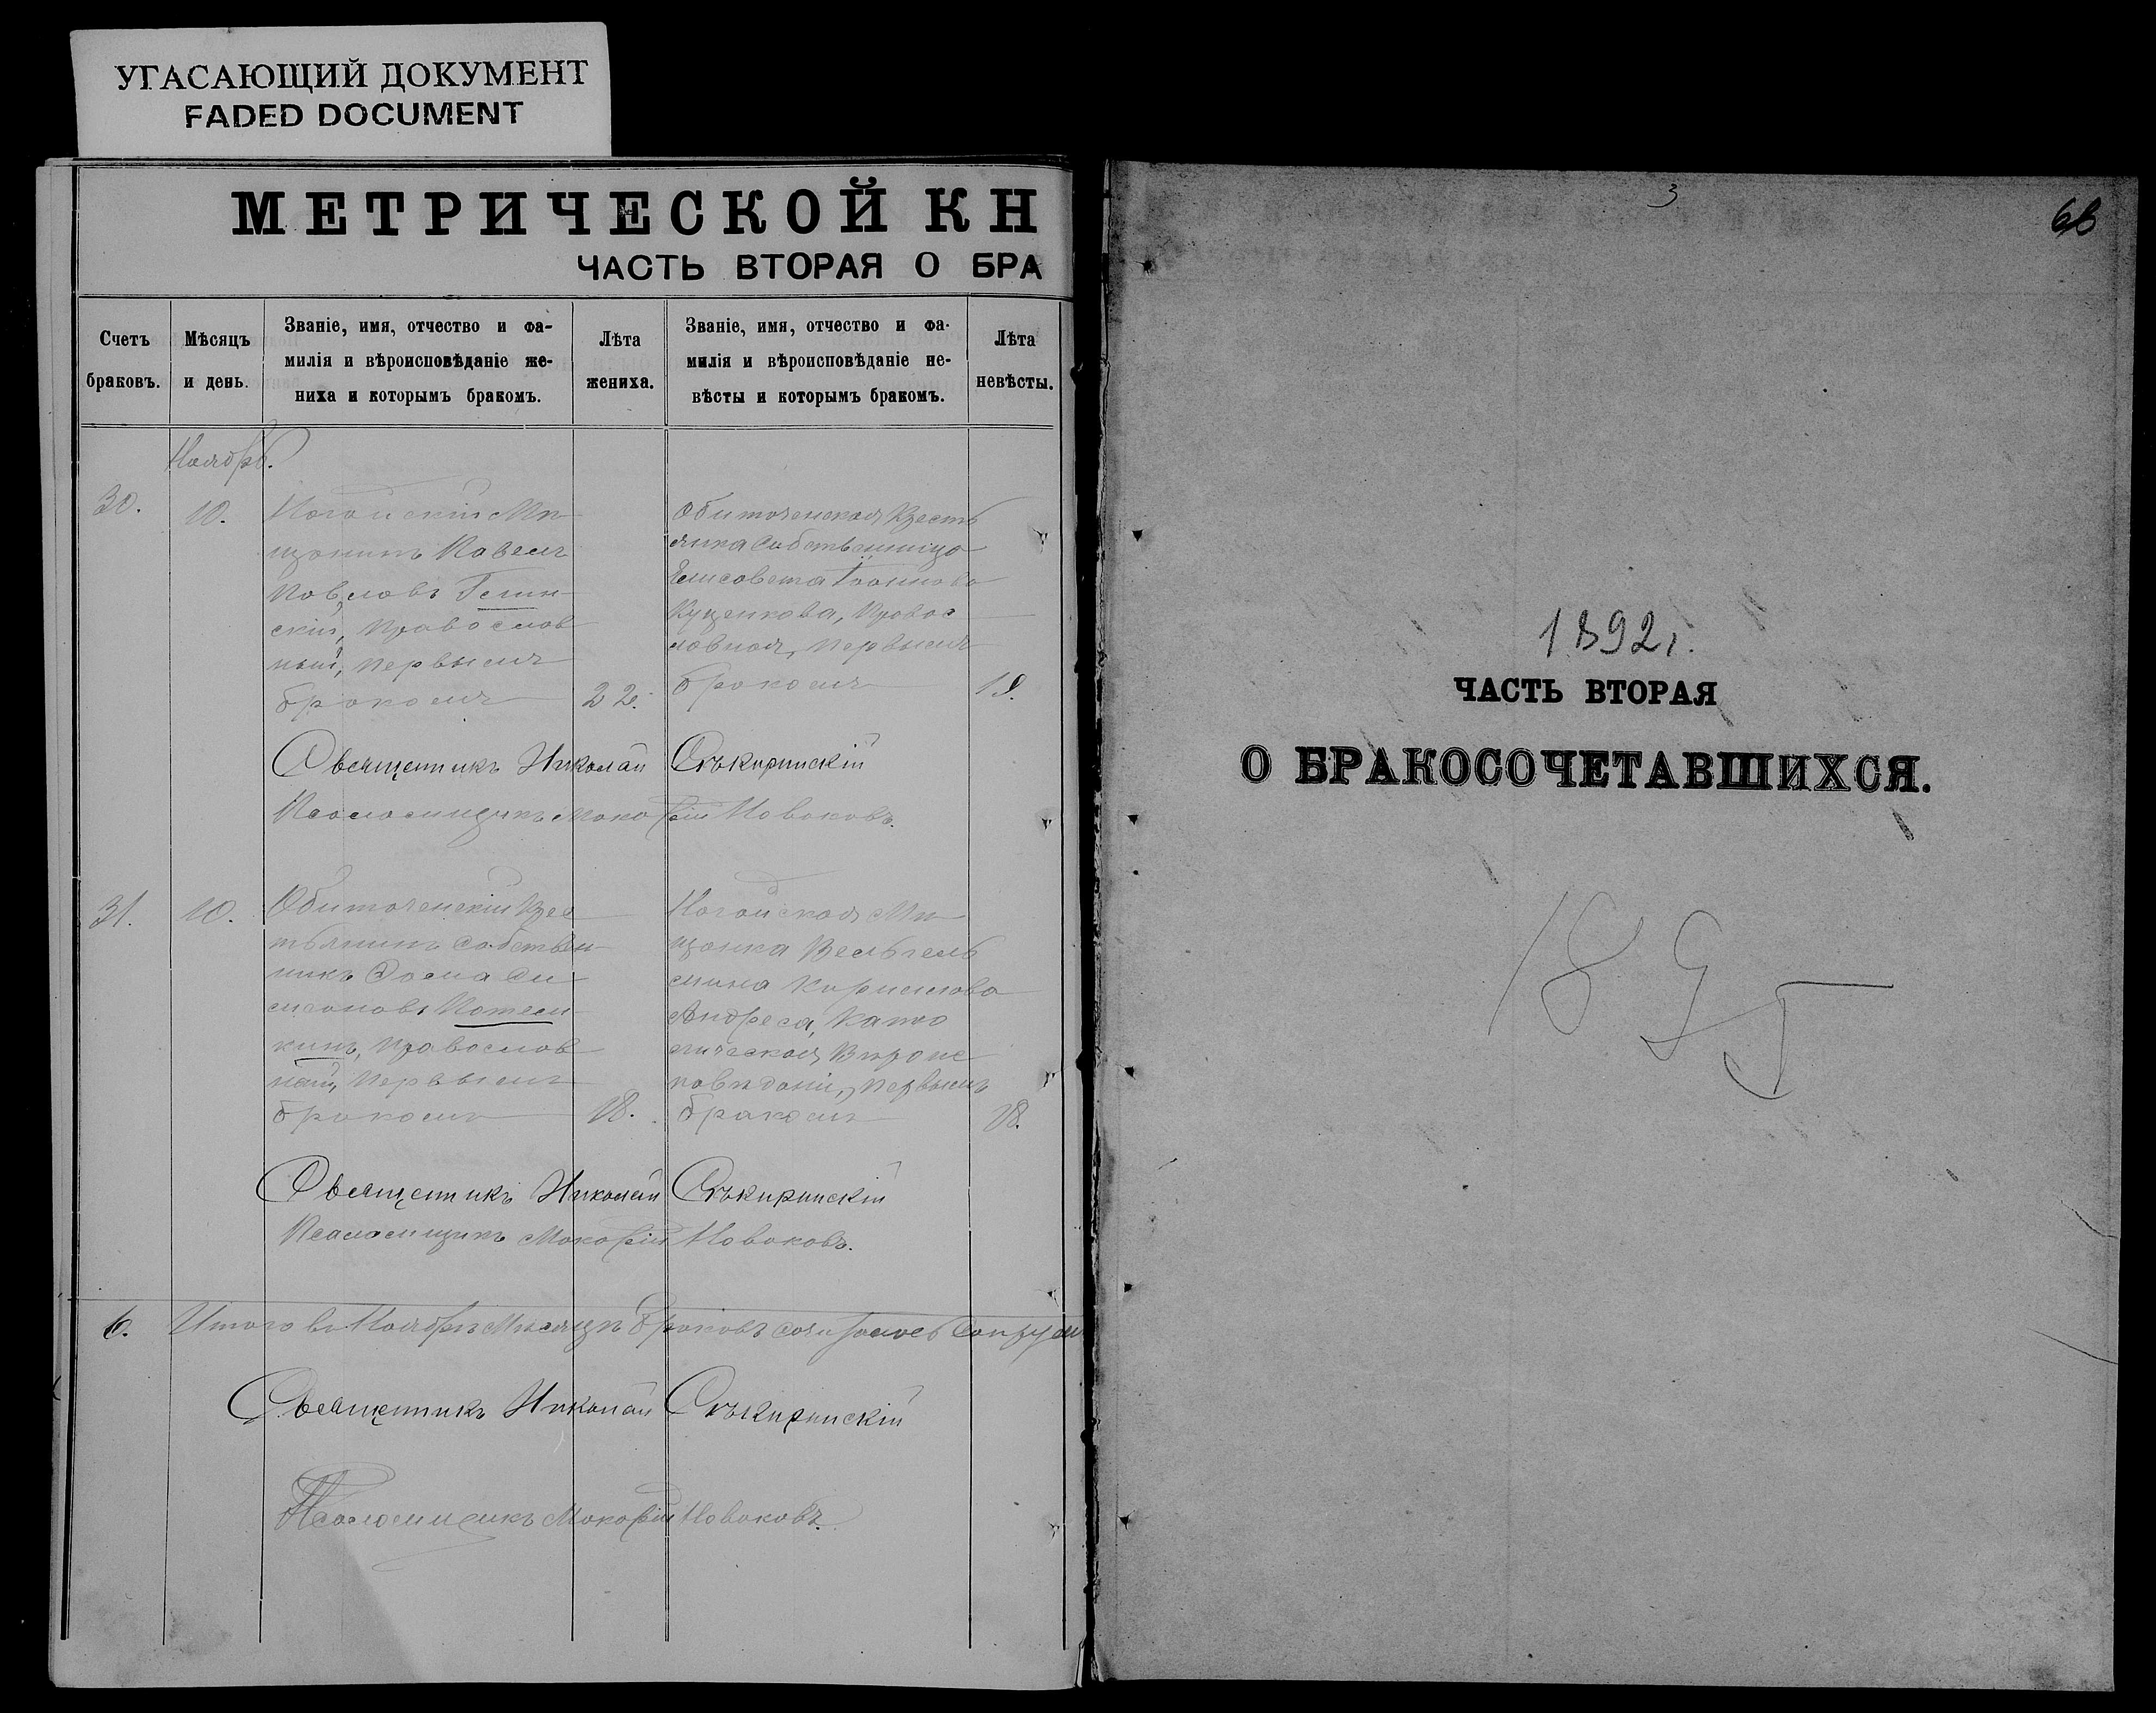 УГАСАЮЩИЙ ДОКУМЕНТ
FADED DOCUMENT
МЕТРИЧЕСКОЙ КН
ЧАСТЬ ВТОРАЯ О БРА
Счетъ браковъ.
Мѣсяцъ и день.
Званіе, имя, отчество и фа-
милія и вѣроисповѣданіе же-
ниха и которымъ бракомъ.
Лѣта жениха.
Званіе, имя, отчество и фа-
милія и вѣроисповѣданіе не-
вѣсты и которымъ бракомъ.
Лѣта невѣсты.
Ноябрь.
30.
10.
Ногайскій Мѣ
щанинъ Павелъ
Павловъ
скій, Православ
ный, первымъ
бракомъ
22.
Обиточенская Кресть
янка собственница
Елисавета Іоаннова
Куценкова, Правос
лавная, первымъ
бракомъ
19.
Священникъ Николай Сѣкиринскій
Псаломщикъ Макарій Новаковъ.
31.
10.
Обиточенскій Крес
тьянинъ собствен
никъ Ѳома Си
меоновъ Потем
кинъ, православ
ный, первымъ
бракомъ
18.
Ногайская Мѣ
щанка Вельгель
мина
Андреса, Като
лическаго Вѣроис
повѣданія, первымъ
бракомъ
18.
Священникъ Николай Сѣкиринскій
Псаломщикъ Макарій Новаковъ.
6.
Итого въ Ноябрѣ Мѣсяцѣ браковъ сочеталось
Священникъ Николай Сѣкиринскій
Псаломщикъ Макарій Новаковъ.
3
68
1892 г.
ЧАСТЬ ВТОРАЯ
О БРАКОСОЧЕТАВШИХСЯ.
1895